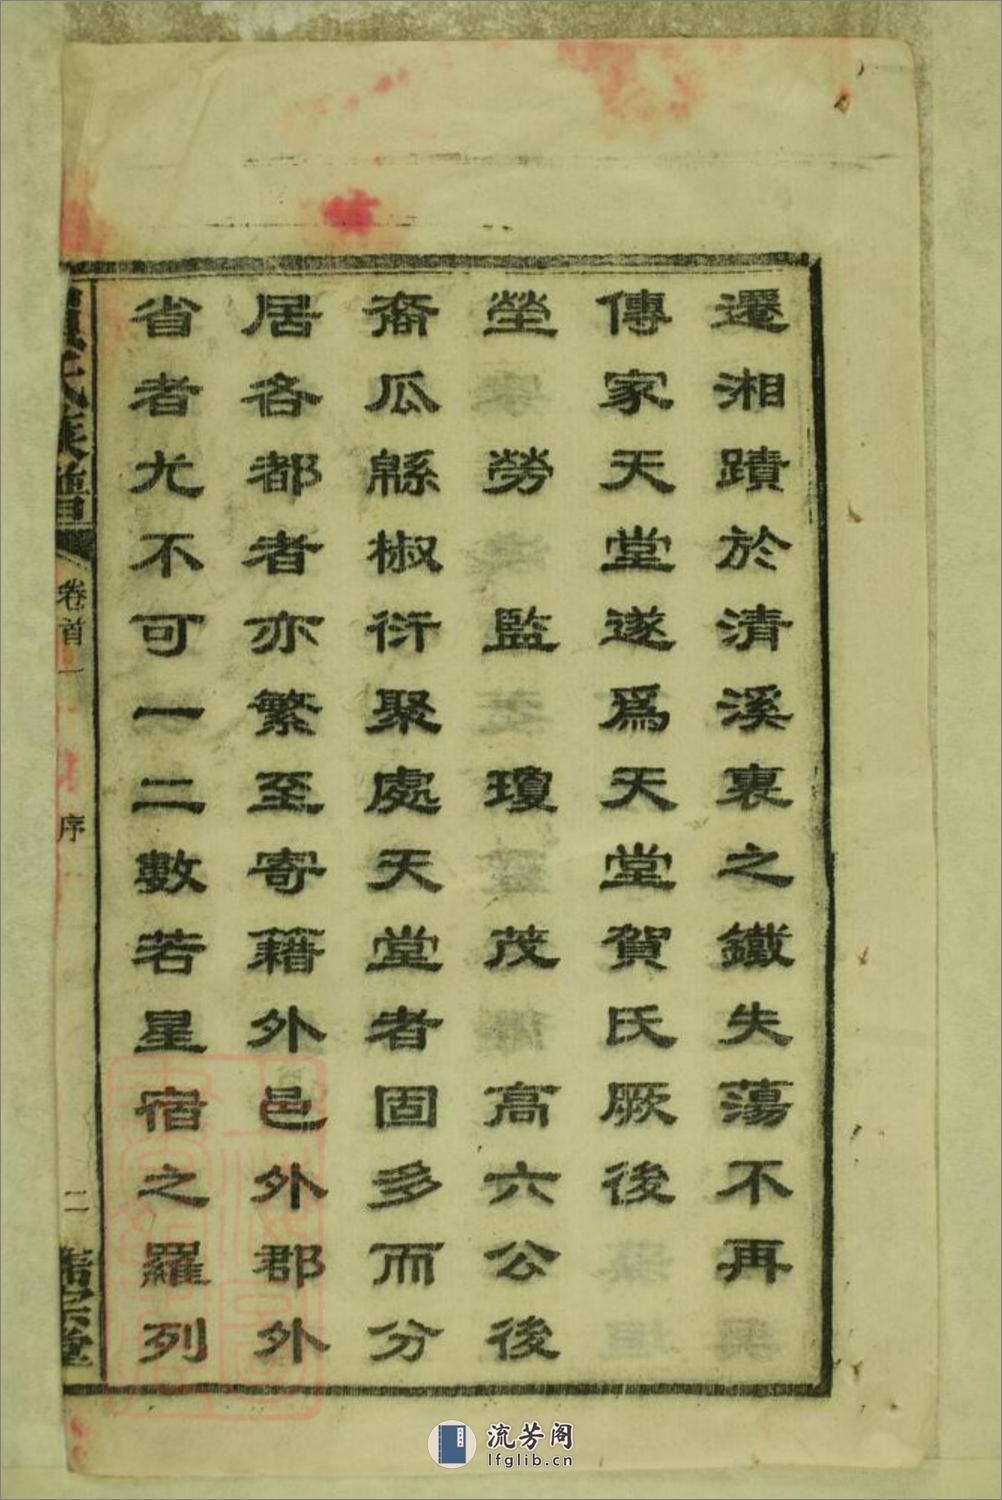 遷湘蹟於清溪裏之鐵失蕩不再
傳家天堂遂爲天堂賀氏厥後
塋 勞 監 瓊 茂 高六公後
裔瓜緜椒衍聚處天堂者固多而分
居各都者亦繁至寄籍外邑外郡外
省者尤不可一二數若星宿之羅列
氏族譜
卷首一
序
二
堂
流芳阁
lfglib.cn